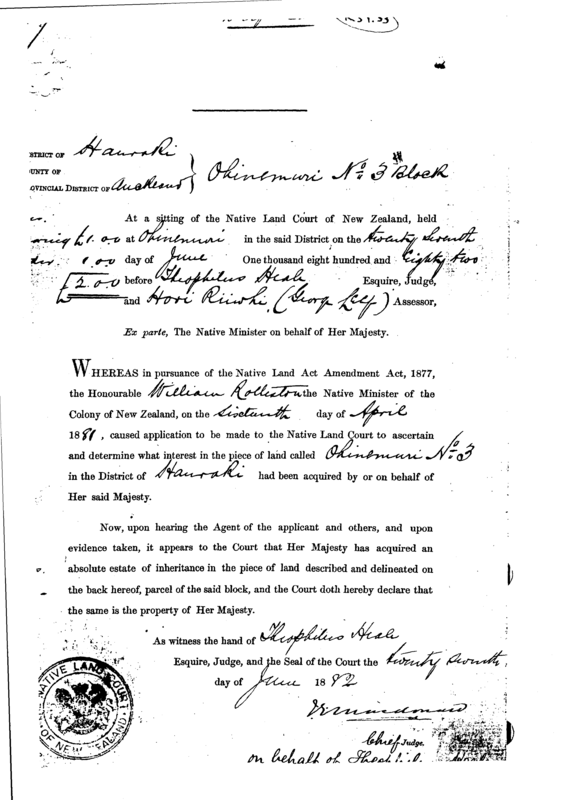 STRICT OF Hauraki
OUNTY OF
OVINCIAL DISTRICT OF Auckland
Ohinemuri No 3 Block
At a sitting of the Native Land Court of New Zealand, held
1.0.0 at Ohinemuri in the said District on the twenty seventh
1.0.0 day of June One thousand eight hundred and Eighty two
£2.0.0 before Theophilus Heale Esquire, Judge,
and Hori (George ) Assessor,
Ex parte, The Native Minister on behalf of Her Majesty.
WHEREAS in pursuance of the Native Land Act Amendment Act, 1877,
the Honourable William Rolleston the Native Minister of the
Colony of New Zealand, on the Sixteenth day of April
1881, caused application to be made to the Native Land Court to ascertain
and determine what interest in the piece of land called Ohinemuri No 3
in the District of Hauraki had been acquired by or on behalf of
Her said Majesty.
Now, upon hearing the Agent of the applicant and others, and upon
evidence taken, it appears to the Court that Her Majesty has acquired an
absolute estate of inheritance in the piece of land described and delineated on
the back hereof, parcel of the said block, and the Court doth hereby declare that
the same is the property of Her Majesty.
As witness the hand of Theophilus Heale
Esquire, Judge, and the Seal of the Court the twenty seventh
day of June 1882
NATIVE LAND COURT OF NEW ZEALAND
Chief Judge.
on behalf of